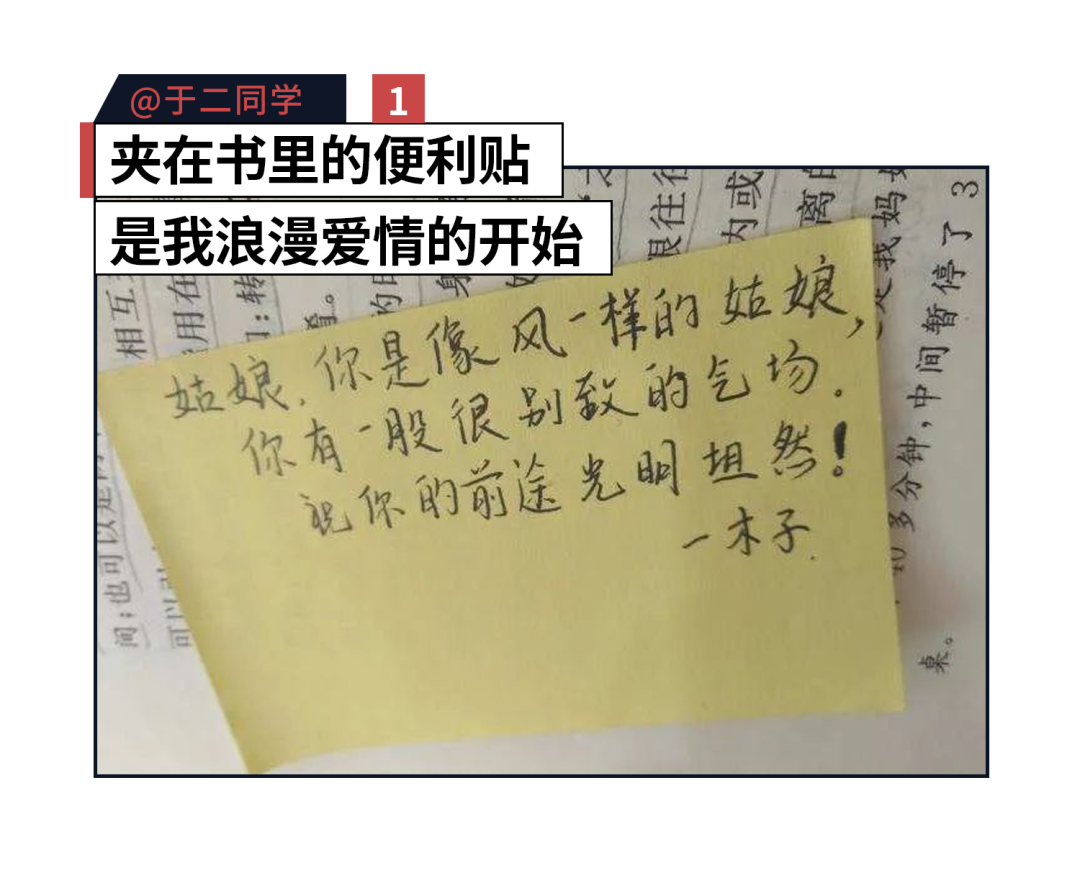 @于二同学
1
夹在书里的便利贴
是我浪漫爱情的开始
姑娘.你是像风一样的姑娘,
你有一股很别致的气场.
祝你的前途光明坦然!
一木子.
相互
用在
:转
肴。
的
身
限往往
内或
离
我妈
中间暂停了3
多分钟,
桌。
间;也可以是
可以